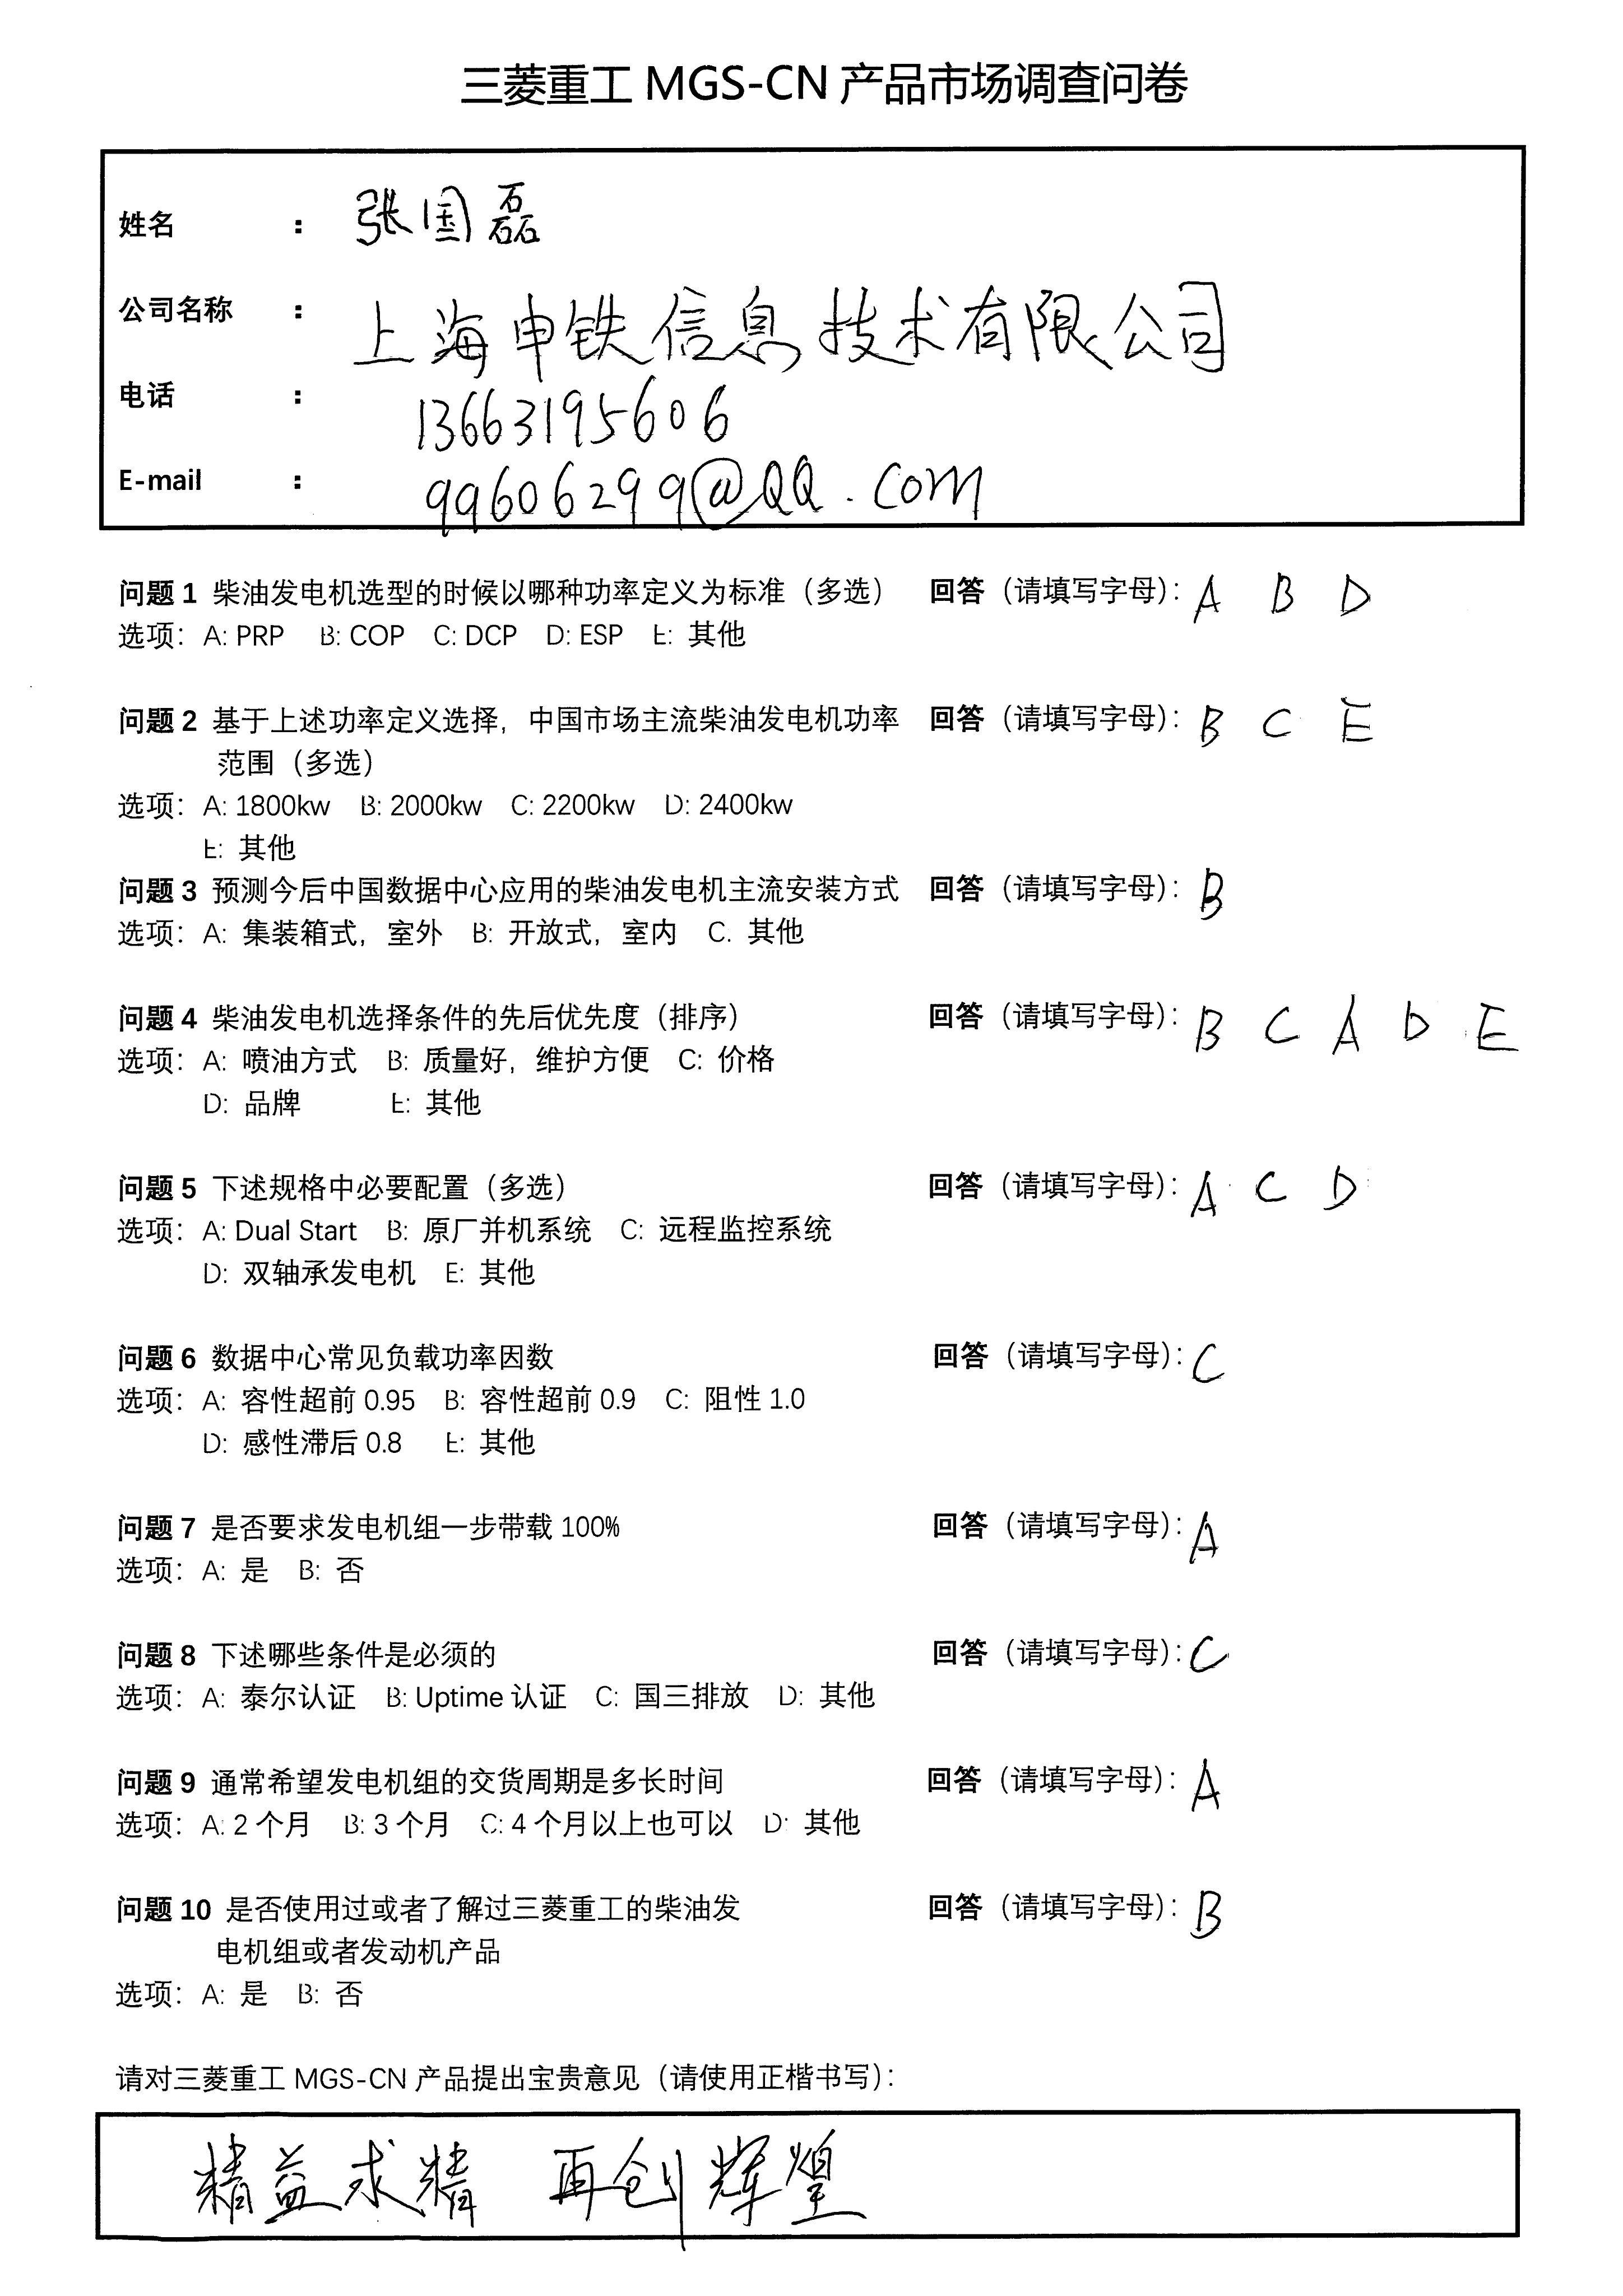 三菱重工 MGS-CN 产品市场调查问卷
姓名 : 张国磊
公司名称 : 上海申铁信息技术有限公司
电话 : 13663195606
E-mail : 99606299@QQ.com
问题 1 柴油发电机选型的时候以哪种功率定义为标准（多选） 回答（请填写字母）： A B D
选项： A: PRP B: COP C: DCP D: ESP E: 其他
问题 2 基于上述功率定义选择，中国市场主流柴油发电机功率 回答（请填写字母）： B C E
范围（多选）
选项： A: 1800kw B: 2000kw C: 2200kw D: 2400kw
E: 其他
问题 3 预测今后中国数据中心应用的柴油发电机主流安装方式 回答（请填写字母）： B
选项： A: 集装箱式，室外 B: 开放式，室内 C. 其他
问题 4 柴油发电机选择条件的先后优先度（排序） 回答（请填写字母）： B C A D E
选项： A: 喷油方式 B: 质量好，维护方便 C: 价格
D: 品牌 E: 其他
问题 5 下述规格中必要配置（多选） 回答（请填写字母）： A C D
选项： A: Dual Start B: 原厂并机系统 C: 远程监控系统
D: 双轴承发电机 E: 其他
问题 6 数据中心常见负载功率因数 回答（请填写字母）： C
选项： A: 容性超前 0.95 B: 容性超前 0.9 C: 阻性 1.0
D: 感性滞后 0.8 E: 其他
问题 7 是否要求发电机组一步带载 100% 回答（请填写字母）： A
选项： A: 是 B: 否
问题 8 下述哪些条件是必须的 回答（请填写字母）： C
选项： A: 泰尔认证 B: Uptime 认证 C: 国三排放 D: 其他
问题 9 通常希望发电机组的交货周期是多长时间 回答（请填写字母）： A
选项： A: 2 个月 B: 3 个月 C: 4 个月以上也可以 D: 其他
问题 10 是否使用过或者了解过三菱重工的柴油发 回答（请填写字母）： B
电机组或者发动机产品
选项： A: 是 B: 否
请对三菱重工 MGS-CN 产品提出宝贵意见（请使用正楷书写）：
精益求精 再创辉煌